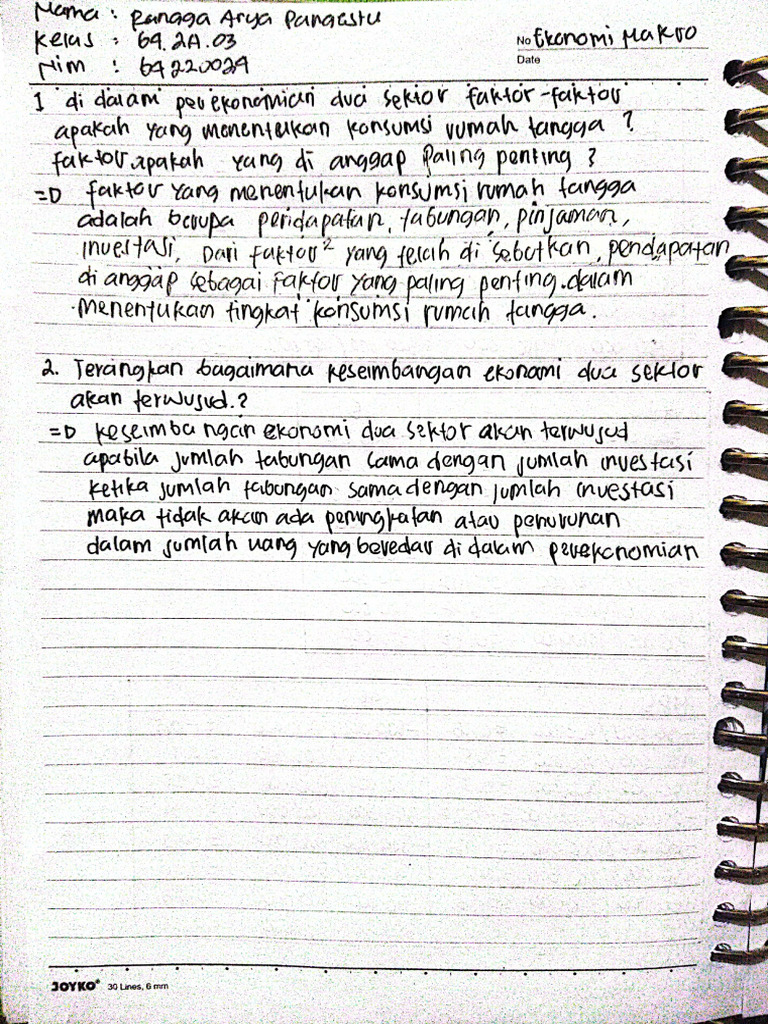 Nama : Rangga Arya Pangestu
Kelas : 64.2A.03
Nim : 64220029
No Ekonomi Makro
Date
1 di dalam perekonomian dua sektor faktor-faktor
apakah yang menentukan konsumsi rumah tangga ?
faktor apakah yang di anggap paling penting ?
=D faktor yang menentukan konsumsi rumah tangga
adalah berupa pendapatan, tabungan, pinjaman,
investasi, Dari faktor² yang telah di sebutkan, pendapatan
di anggap sebagai faktor yang paling penting dalam
menentukan tingkat konsumsi rumah tangga.
2. Terangkan bagaimana keseimbangan ekonomi dua sektor
akan terwujud.?
=D keseimbangan ekonomi dua sektor akan terwujud
apabila jumlah tabungan sama dengan jumlah investasi
ketika jumlah tabungan sama dengan jumlah investasi
maka tidak akan ada peningkatan atau penurunan
dalam jumlah uang yang beredar di dalam perekonomian
JOYKO® 30 Lines, 6 mm